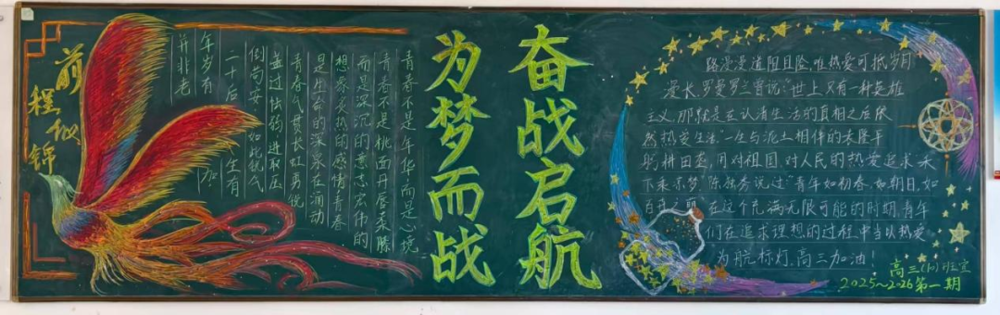 前程似锦
奋战启航
为梦而战
青春不是年华而是心境
青春不是桃面丹唇柔膝
而是深沉的意志宏伟的
想象炙热的感情青春
是生命的深泉在涌动
青春气贯长虹勇锐
盖过怯弱进取压
倒苟安 如此锐气
二十后 生有
年岁有 加
并非 老
路漫漫道阻且险,唯热爱可抵岁月
漫长.罗曼罗兰曾说:"世上只有一种英雄
主义,那就是在认清生活的真相之后依
然热爱生活"一生与泥土相伴的袁隆平
躬耕田亩,用对祖国对人民的热爱追求禾
下乘凉梦.陈独秀说过"青年如初春,如朝日,如
百卉之萌.在这个充满无限可能的时期,青年
们在追求理想的过程中当以热爱
为航标灯.高三加油!
高三(10)班宣
2025~2026第一期